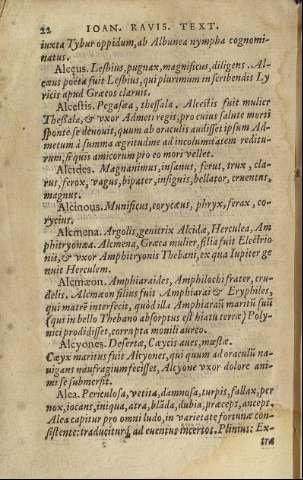 22 IOAN. RAVIS. TEXT.
iuxta Tybur oppidum, ab Albunea nympha cognomi-
natus.
Alcęus. Lesbius, pugnax, magnificus, diligens. Al-
cæus poëta fuit Lesbius, qui plurimum in scribendis Ly
ricis apud Græcos claruit.
Alcestis. Pegasæa, thessala. Alcestis fuit mulier
Thessala, & vxor Admeti regis, pro cuius salute morti
sponte se deuouit, quum ab oraculis audisset ipsum Ad-
metum à summa ægritudine ad incolumitatem reditu-
rum, si quis amicorum pro eo mori vellet.
Alcides. Magnanimus, insanus, ferus, trux, cla-
rus, ferox, vagus, bipater, insignis, bellator, cruentus,
magnus.
Alcinous. Munificus, corycæus, phryx, ferax, co-
rycius.
Alcmena. Argolis, genitrix Alcidæ, Herculea, Am
phitryonæa. Alcmena, Græca mulier, filia fuit Electrio
nis, & vxor Amphitryonis Thebani, ex qua Iupiter ge
nuit Herculem.
Alcmæon. Amphiaraides, Amphilochi frater, cru-
delis. Alcmæon filius fuit Amphiarai & Eryphiles,
qui matrē interfecit, quòd illa Amphiaraū maritū suū
(qui in bello Thebano absorptus est hiatu terræ) Poly-
nici prodidisset, corrupta monili aureo.
Alcyones. Deserta, Cæycis aues, mæstæ.
Cæyx maritus fuit Alcyones, qui quum ad oraculū na-
uigans naufragium fecisset, Alcyone vxor dolore ani-
mi se submersit.
Alea. Periculosa, vetita, damnosa, turpis, fallax, per
nox, iocans, iniqua, atra, blāda, dubia, præceps, anceps.
Alea capitur pro omni ludo, in varietate fortunæ con-
sistente: traducitur ad euentus incertos. Plinius: Ex-
tra